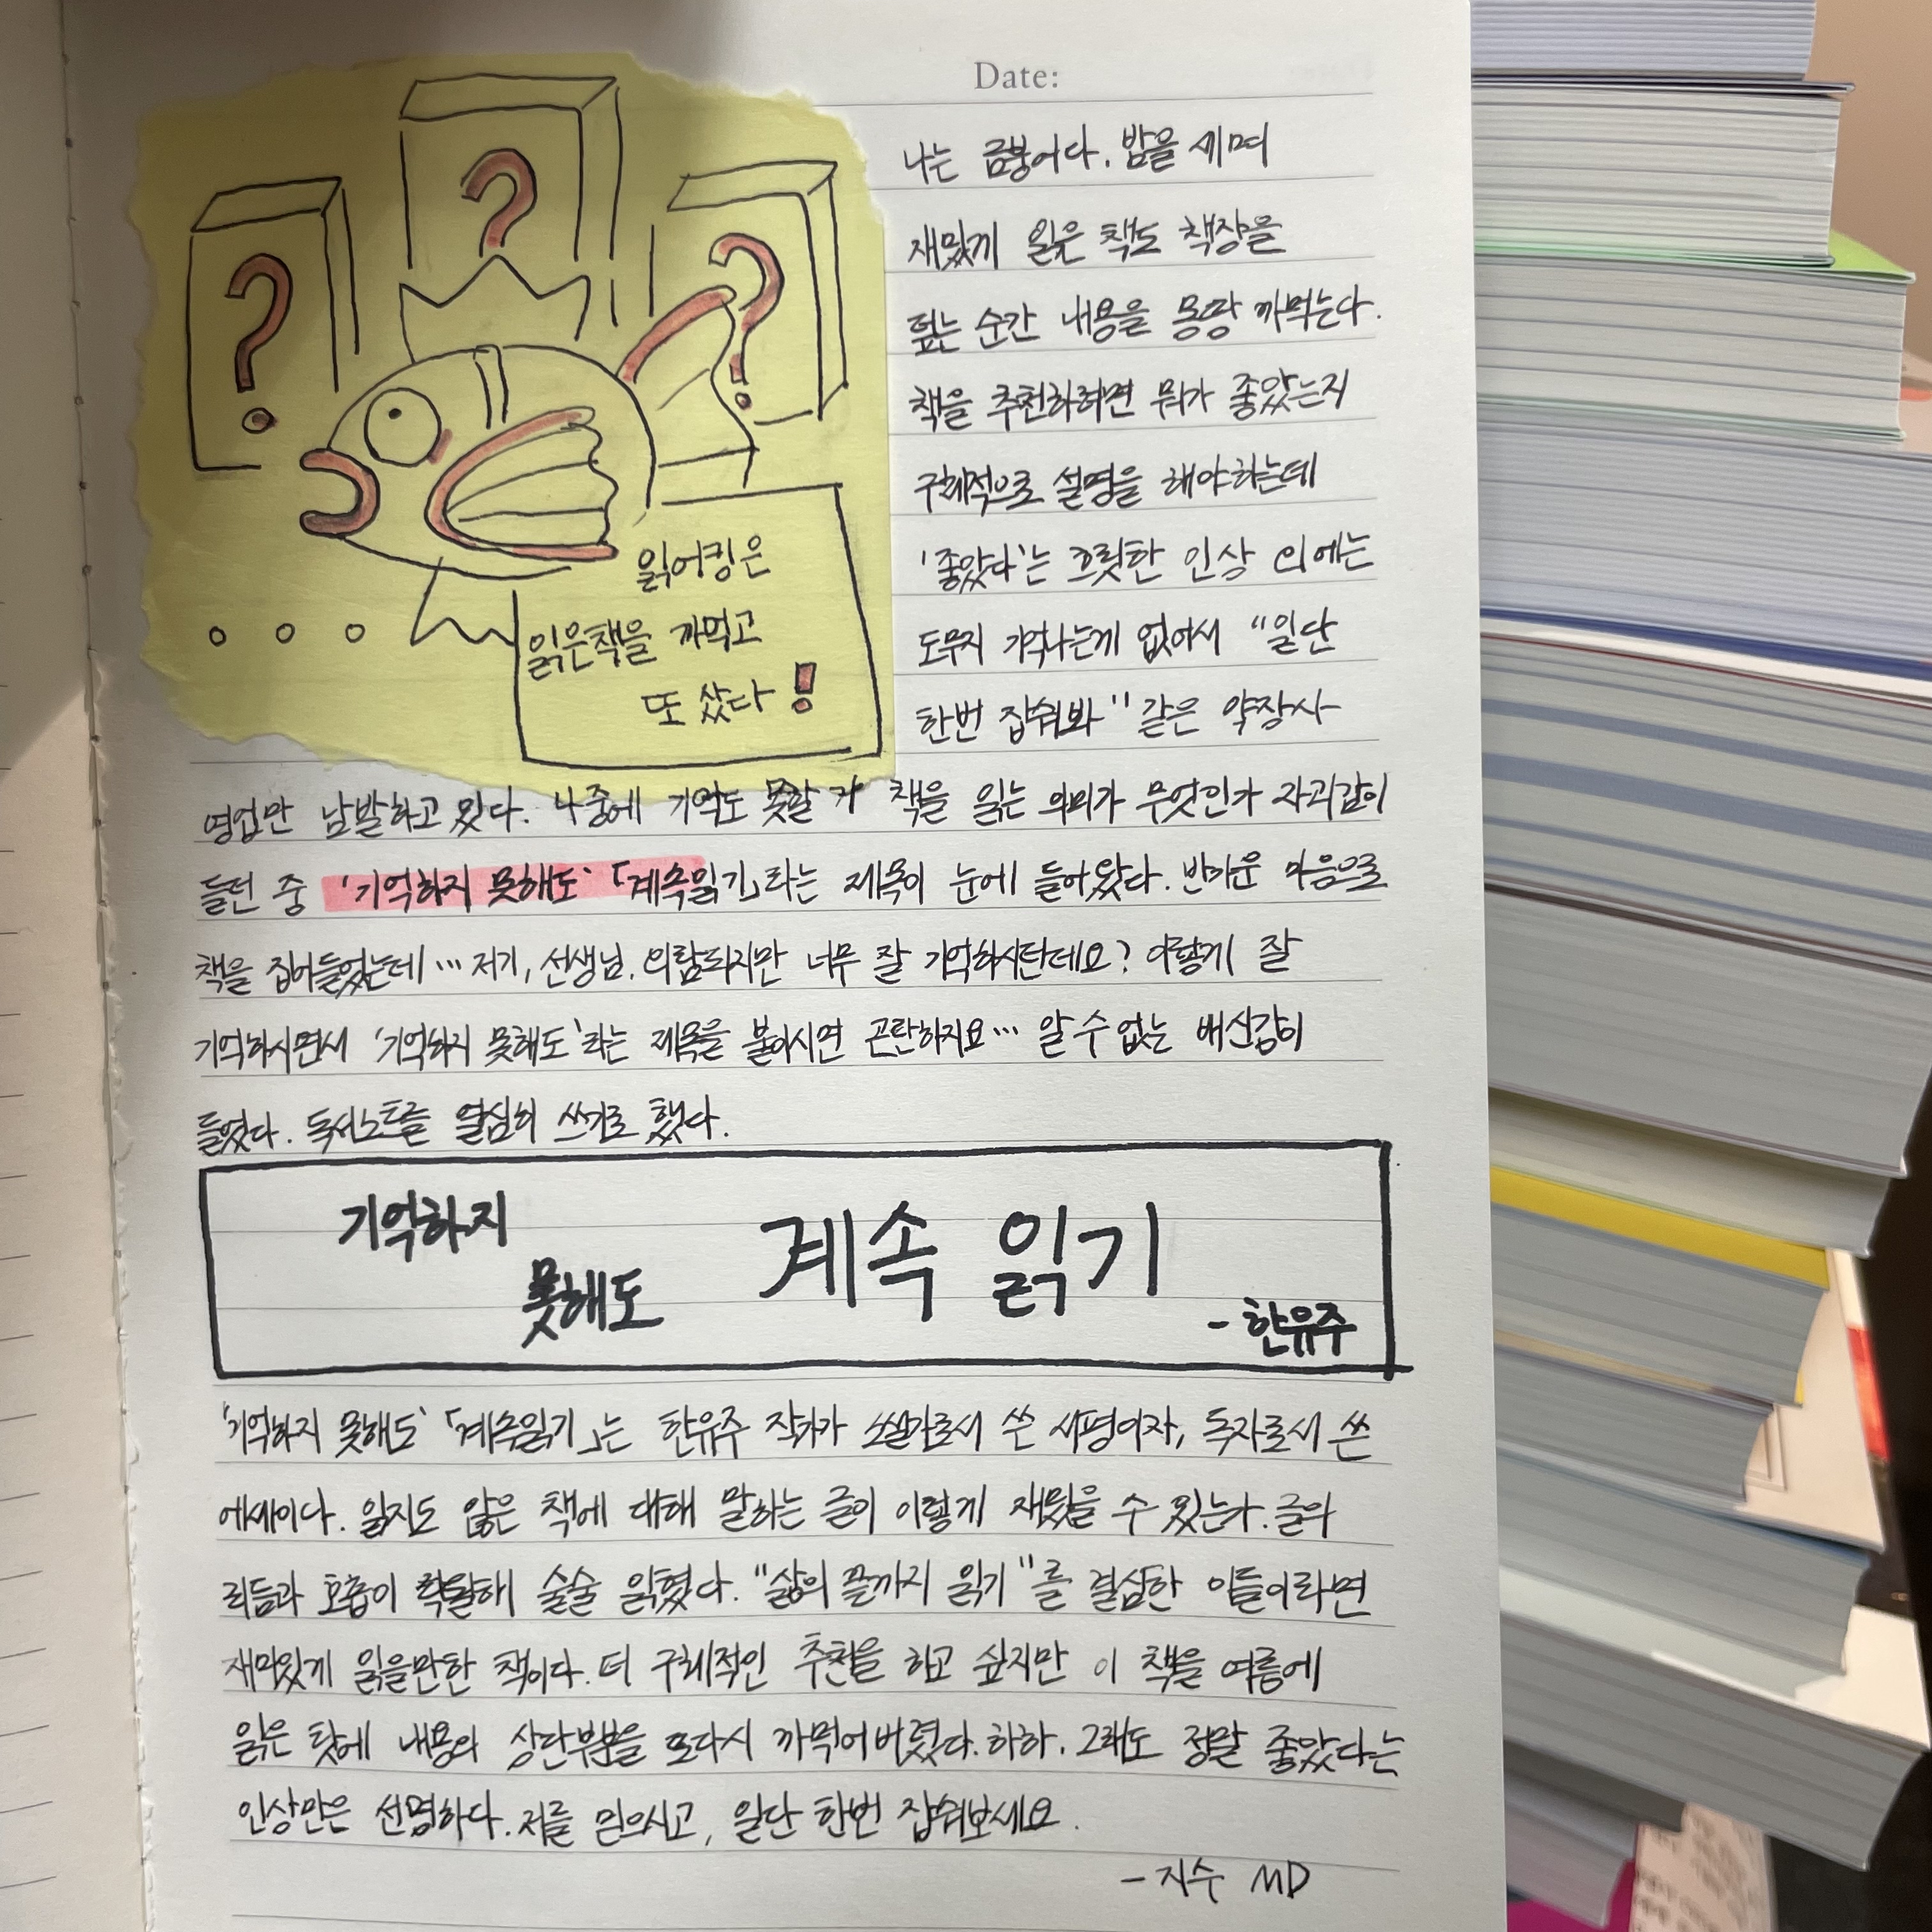 Date:
?
?
?
읽어킹은
읽은책을 까먹고
또 샀다!
나는 금붕어다. 밤을 세며
재밌게 읽은 책도 책장을
덮는 순간 내용을 몽땅 까먹는다.
책을 추천하려면 뭐가 좋았는지
구체적으로 설명을 해야하는데
'좋았다'는 흐릿한 인상 외에는
도무지 기억나는게 없어서 "일단
한번 잡숴봐" 같은 약장사
영업만 남발하고 있다. 나중에 기억도 못할 거 책을 읽는 의미가 무엇인가 자괴감이
들던 중 '기억하지 못해도' 「계속읽기」라는 제목이 눈에 들어왔다. 반가운 마음으로
책을 집어들었는데... 저기, 선생님. 외람되지만 너무 잘 기억하시탄데요? 이렇게 잘
기억하시면서 '기억하지 못해도'라는 제목을 붙이시면 곤란하지요... 알 수 없는 배신감이
들었다. 독서노트를 열심히 쓰기로 했다.
기억하지
못해도
계속 읽기
- 한유주
'기억하지 못해도' 「계속읽기」는 한유주 작가가 소설가로서 쓴 서평이자, 독자로서 쓴
에세이다. 읽지도 않은 책에 대해 말하는 글이 이렇게 재밌을 수 있는가. 글의
리듬과 호흡이 탁월해 술술 읽혔다. "삶의 끝까지 읽기"를 결심한 이들이라면
재미있게 읽을만한 책이다. 더 구체적인 추천을 하고 싶지만 이 책을 여름에
읽은 탓에 내용의 상단부분을 또다시 까먹어버렸다. 하하. 그래도 정말 좋았다는
인상만은 선명하다. 저를 믿으시고, 일단 한번 잡숴보세요.
- 지수 MD